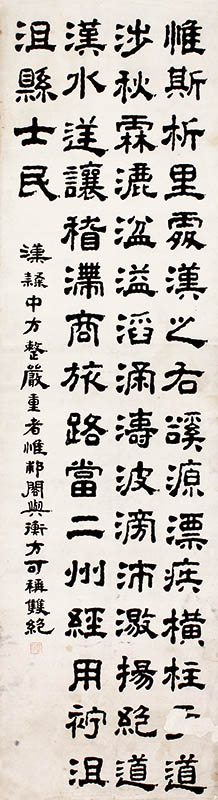 惟斯析里處漢之右谿源漂疾橫柱于道
涉秋霖漉湓溢滔涌濤波滂沛激揚絕道
漢水逆讓稽滯商旅路當二州經用衿沮
沮縣士民
漢隸中方整嚴重者惟郙閣與衡方可稱雙絕